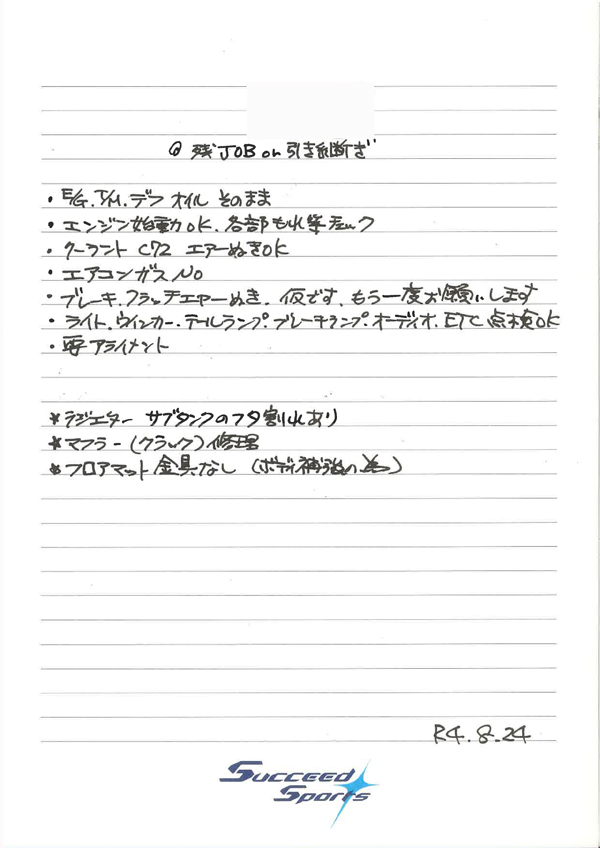 残JOB on 引き
・E/G.T/M.デフ オイル そのまま
・エンジン始動OK.各部もれ等チェック
・クーラント C72 エアーぬきOK
・エアコンガス NO
・ブレーキ.クラッチエアーぬき.仮です.もう一度お願いします
・ライト.ウインカー.テールランプ.ブレーキランプ.オーディオ.ETC 点検OK
・要アライメント
*ラジエター サブタンクのフタ割れあり
*マフラー(クラック)修理
*フロアマット 金具なし (ボディ補強の為)
R4.8.24
Succeed
Sports